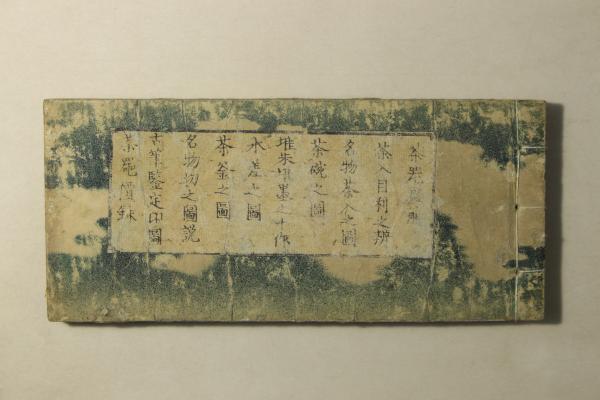 茶器
茶入目利之辨
名物茶入之圖
茶碗之圖
堆朱堆墨之十作
水差之圖
茶釜之圖
名物切之圖説
古筆鑒定印圖
茶器價録